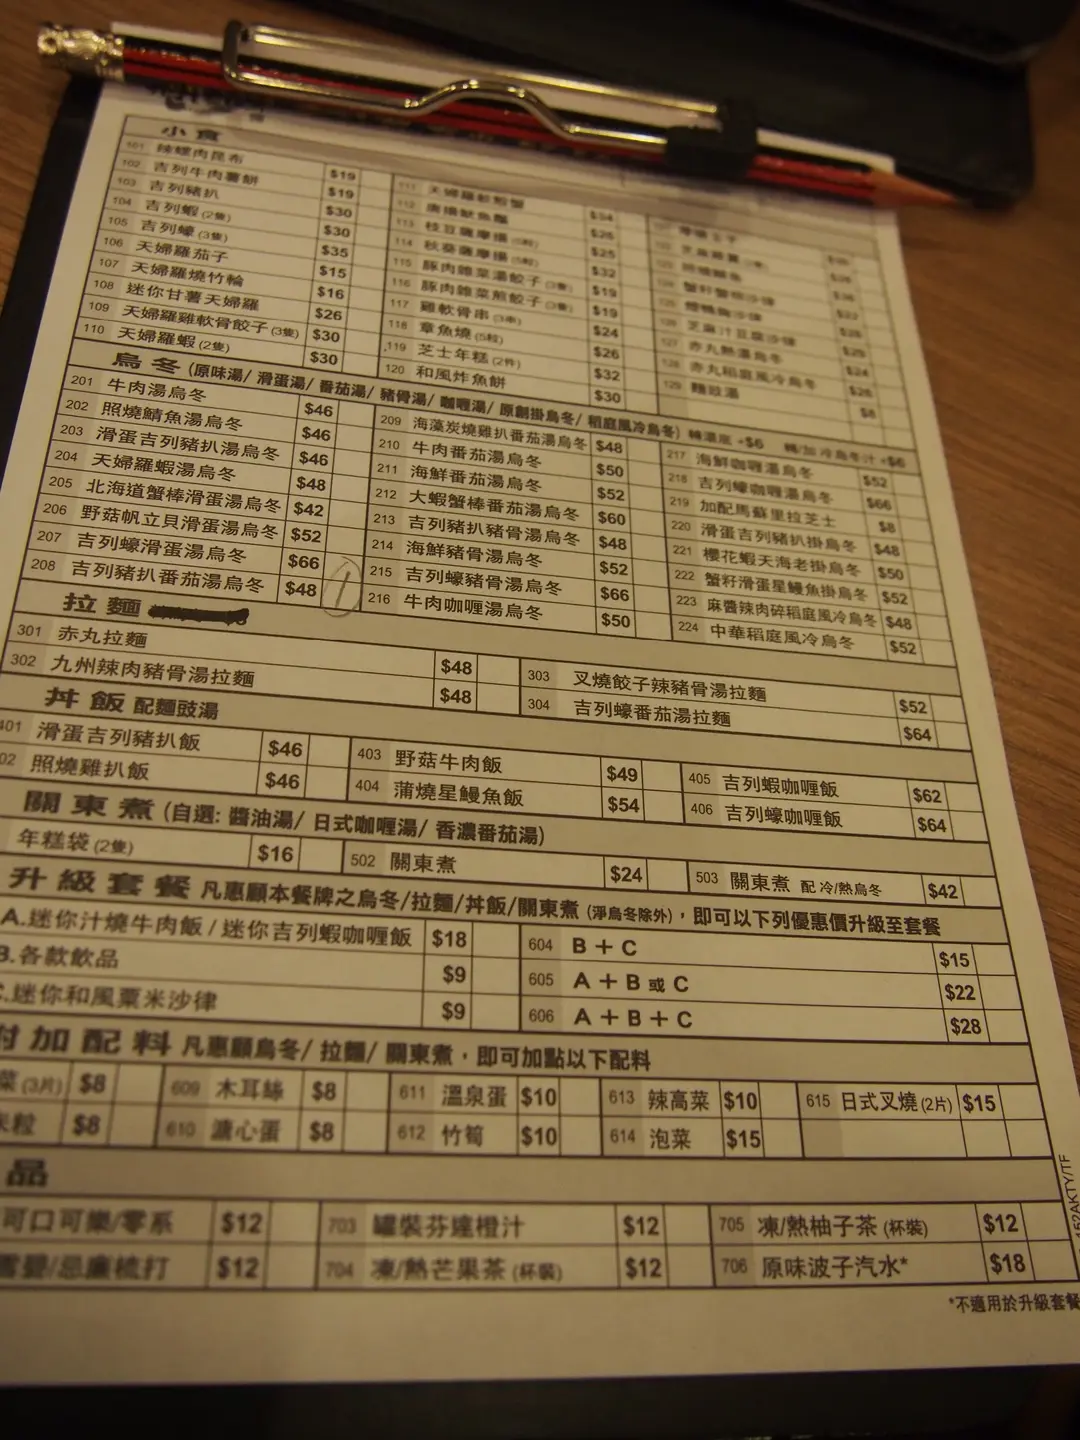 小食
101 辣螺肉昆布 $19
102 吉列牛肉薯餅 $19
103 吉列豬扒 $30
104 吉列蝦 (2隻) $30
105 吉列蠔 (3隻) $35
106 天婦羅茄子 $15
107 天婦羅燒竹輪 $16
108 迷你甘薯天婦羅 $26
109 天婦羅雞軟骨餃子 (3隻) $30
110 天婦羅蝦 (2隻) $30
111 天婦羅軟殼蟹 $34
112 唐揚魷魚鬚 $26
113 枝豆薩摩揚 $25
114 秋葵薩摩揚 $32
115 豚肉雜菜湯餃子 (3隻) $19
116 豚肉雜菜煎餃子 (3隻) $19
117 雞軟骨串 (3串) $24
118 章魚燒 (5粒) $26
119 芝士年糕 (2件) $32
120 和風炸魚餅 $30
126 芝麻汁豆腐沙律
127 赤丸熱湯烏冬 $24
128 赤丸稻庭風冷烏冬 $26
129 麵豉湯 $8
烏冬 (原味湯/ 滑蛋湯/ 番茄湯/ 豬骨湯/ 咖喱湯/ 原創掛烏冬/ 稻庭風冷烏冬) 轉湯底 +$6 轉/加 冷烏冬汁 +$6
201 牛肉湯烏冬 $46
202 照燒鯖魚湯烏冬 $46
203 滑蛋吉列豬扒湯烏冬 $46
204 天婦羅蝦湯烏冬 $48
205 北海道蟹棒滑蛋湯烏冬 $42
206 野菇帆立貝滑蛋湯烏冬 $52
207 吉列蠔滑蛋湯烏冬 $66
208 吉列豬扒番茄湯烏冬 $48 1
209 海藻炭燒雞扒番茄湯烏冬 $48
210 牛肉番茄湯烏冬 $50
211 海鮮番茄湯烏冬 $52
212 大蝦蟹棒番茄湯烏冬 $60
213 吉列豬扒豬骨湯烏冬 $48
214 海鮮豬骨湯烏冬 $52
215 吉列蠔豬骨湯烏冬 $66
216 牛肉咖喱湯烏冬 $50
217 海鮮咖喱湯烏冬 $52
218 吉列蠔咖喱湯烏冬 $66
219 加配馬蘇里拉芝士 $8
220 滑蛋吉列豬扒掛烏冬 $48
221 櫻花蝦天海老掛烏冬 $50
222 蟹籽滑蛋星鰻魚掛烏冬 $52
223 麻醬辣肉碎稻庭風冷烏冬 $48
224 中華稻庭風冷烏冬 $52
拉麵
301 赤丸拉麵 $48
302 九州辣肉豬骨湯拉麵 $48
303 叉燒餃子辣豬骨湯拉麵 $52
304 吉列蠔番茄湯拉麵 $64
丼飯 配麵豉湯
401 滑蛋吉列豬扒飯 $46
02 照燒雞扒飯 $46
403 野菇牛肉飯 $49
404 蒲燒星鰻魚飯 $54
405 吉列蝦咖喱飯 $62
406 吉列蠔咖喱飯 $64
關東煮 (自選: 醬油湯/ 日式咖喱湯/ 香濃番茄湯)
年糕袋 (2隻) $16
502 關東煮 $24
503 關東煮 配 冷/熱烏冬 $42
升級套餐 凡惠顧本餐牌之烏冬/拉麵/丼飯/關東煮 (淨烏冬除外)，即可以下列優惠價升級至套餐
A.迷你汁燒牛肉飯 / 迷你吉列蝦咖喱飯 $18
B.各款飲品 $9
C.迷你和風粟米沙律 $9
604 B + C $15
605 A + B 或 C $22
606 A + B + C $28
附加配料 凡惠顧烏冬/ 拉麵/ 關東煮，即可加點以下配料
菜 (3片) $8
米粒 $8
609 木耳絲 $8
610 溏心蛋 $8
611 溫泉蛋 $10
612 竹筍 $10
613 辣高菜 $10
614 泡菜 $15
615 日式叉燒 (2片) $15
品
可口可樂/零系 $12
雪碧/忌廉梳打 $12
703 罐裝芬達橙汁 $12
704 凍/熱芒果茶 (杯裝) $12
705 凍/熱柚子茶 (杯裝) $12
706 原味波子汽水* $18
*不適用於升級套餐
AKTY/TF